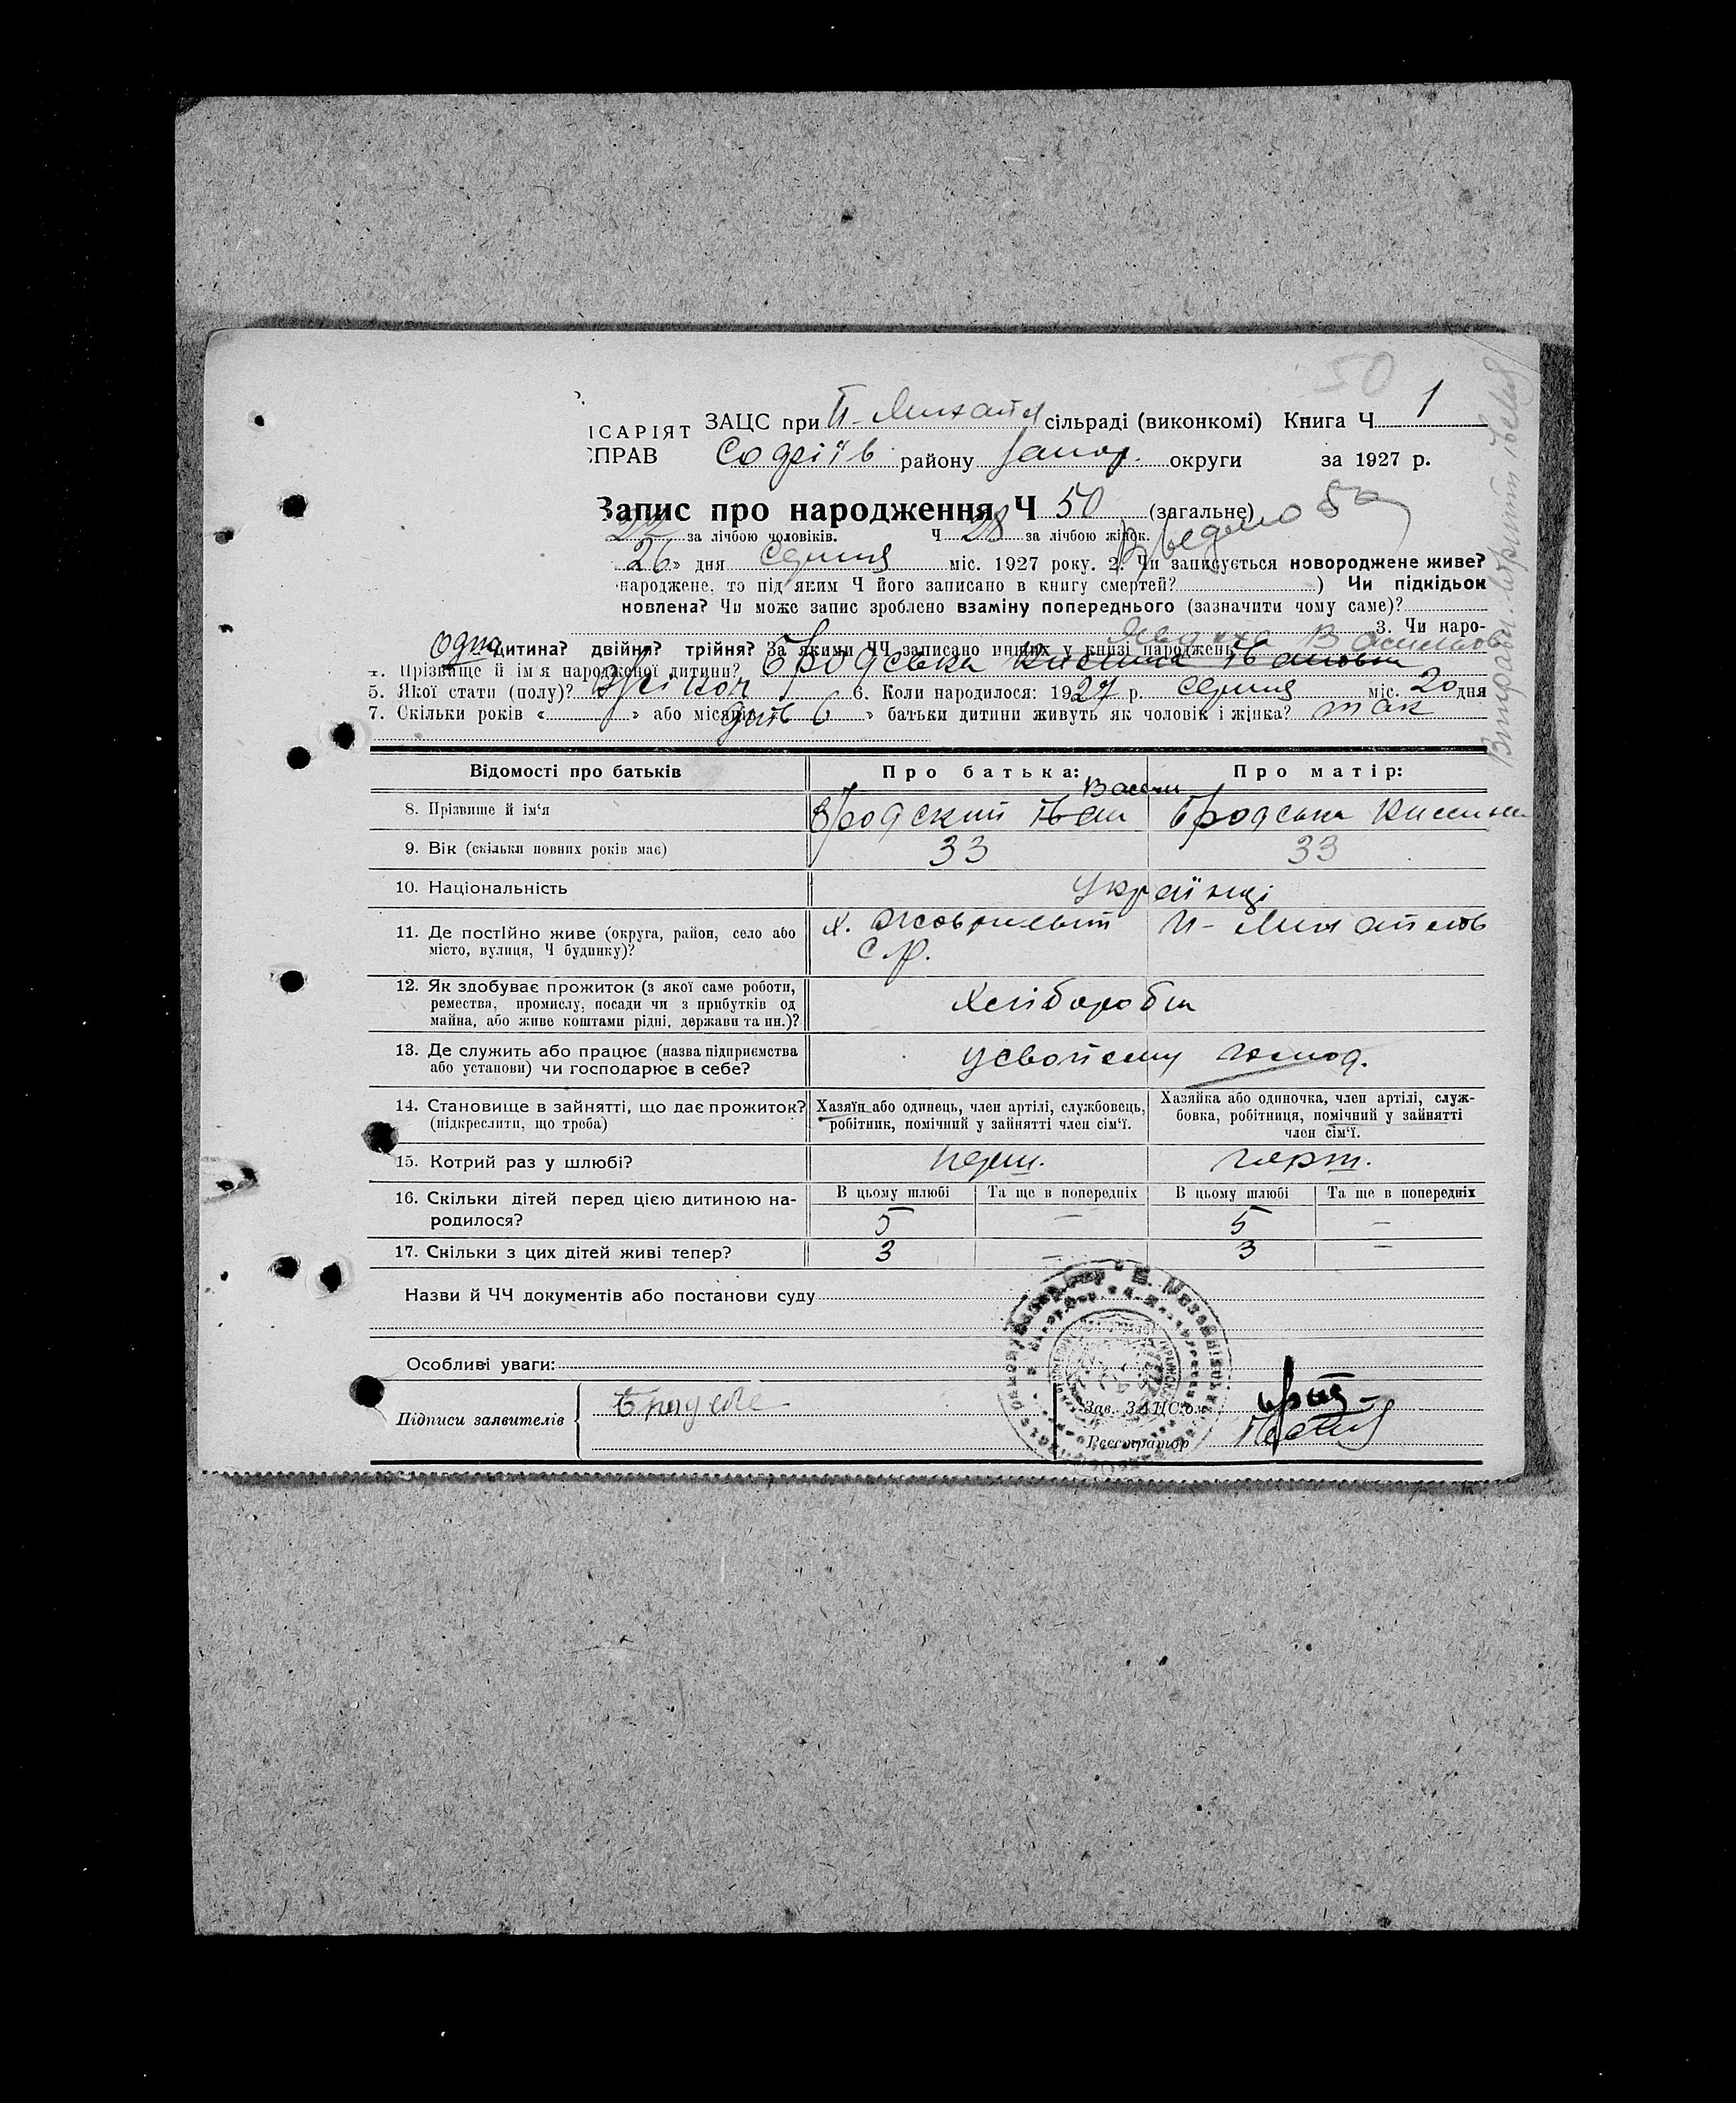 50
ІСАРІЯТ ЗАЦС при Н-Михайл сільраді (виконкомі) Книга Ч 1
СПРАВ Софіїв району Запор. округи за 1927 р.
Запис про народження Ч 50 (загальне)
22 за лічбою чоловіків. Ч 28 за лічбою жінок.
26» дня серпня міс. 1927 року. 2. Чи записується новороджене живе?
народжене, то під яким Ч його записано в книгу смертей? ) Чи підкідьок
новлена? Чи може запис зроблено взаміну попереднього (зазначити чому саме)?
3. Чи наро-
Одна дитина? двійня? трійня? За якими ЧЧ записано инших у книзі народжень
Василівн
4. Прізвище й ім'я народженої дитини? Бродська Івановна
5. Якої стати (полу)? Жіноч 6. Коли народилося: 1927 р. серпня міс. 20 дня
7. Скільки років « » або місяців днів 6 » батьки дитини живуть як чоловік і жінка? так
Відомості про батьків Про батька: Про матір:
Васил
8. Прізвище й ім'я Бродский Іван Бродська
9. Вік (скільки повних років має) 33 33
10. Національність Українці
11. Де постійно живе (округа, район, село або х. Н-Михайлов
місто, вулиця, Ч будинку)? С.р.
12. Як здобуває прожиток (з якої саме роботи,
ремества, промислу, посади чи з прибутків од Хлібороби
майна, або живе коштами рідні, держави та ин.)?
13. Де служить або працює (назва підприємства у своїому господ.
або установи) чи господарює в себе?
14. Становище в зайнятті, що дає прожиток? Хазяїн або одинець, член артілі, службовець, Хазяйка або одиночка, член артілі, служ-
(підкреслити, що треба) робітник, помічний у зайнятті член сім'ї. бовка, робітниця, помічний у зайнятті
член сім'ї.
15. Котрий раз у шлюбі? перш. перш.
16. Скільки дітей перед цією дитиною на- В цьому шлюбі Та ще в попередніх В цьому шлюбі Та ще в попередніх
родилося? 5 — 5 —
17. Скільки з цих дітей живі тепер? 3 — 3 —
Назви й ЧЧ документів або постанови суду
Особливі уваги:
Підписи заявителів
Зав. ЗАЦС'ом
Реєстратор